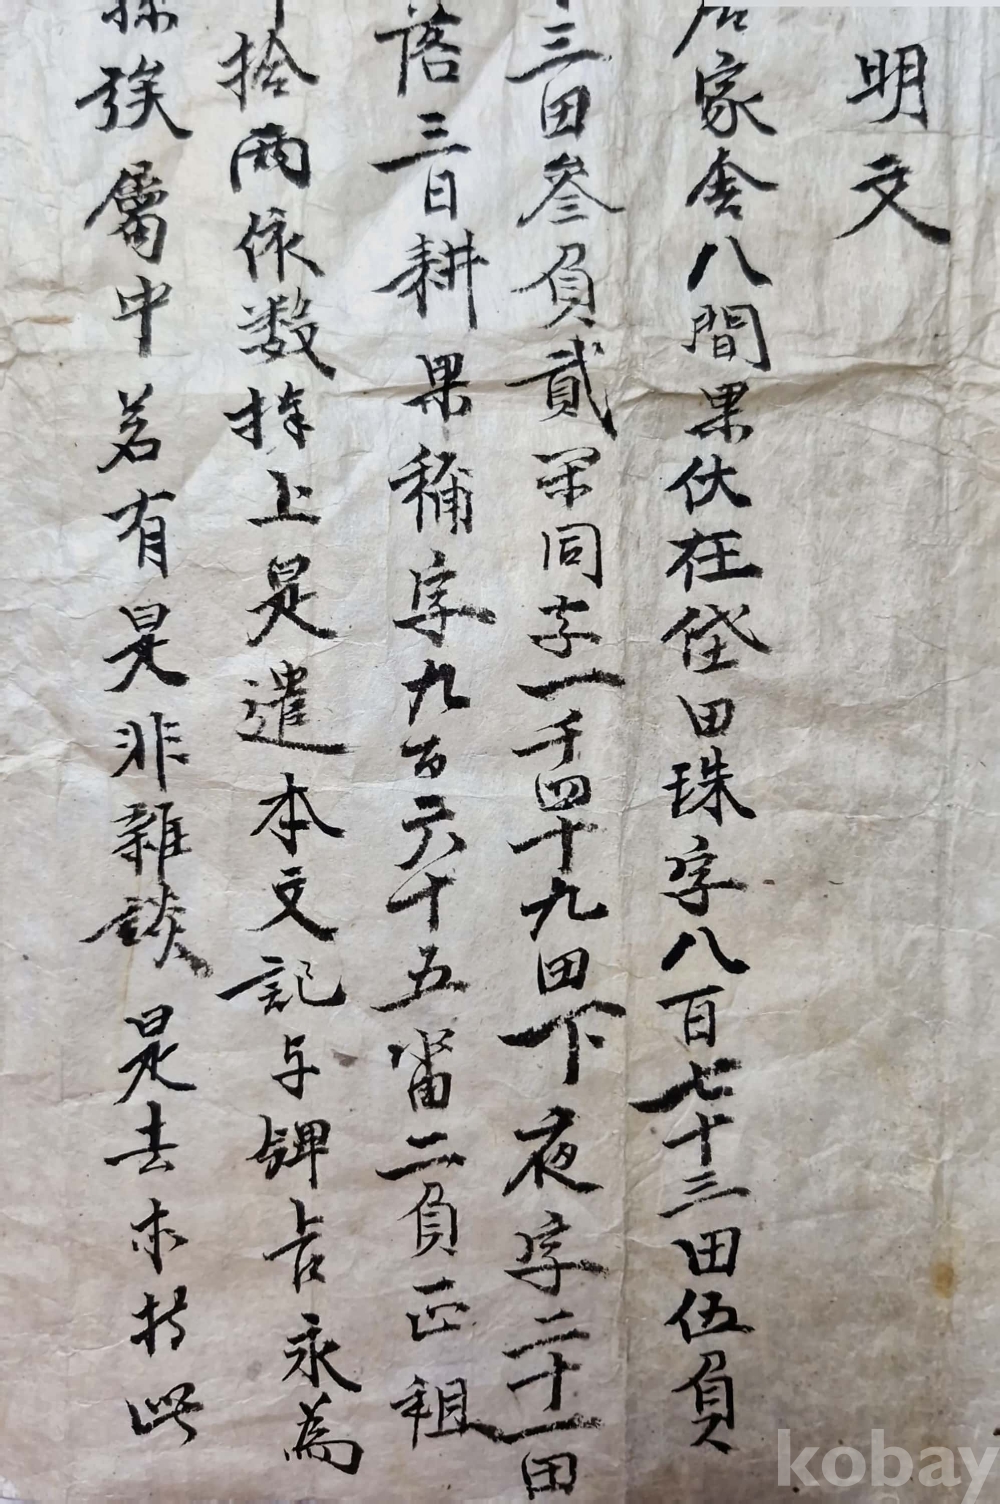 明文
居家舍八間果伏在垈田珠字八百七十三田伍負
三田參負貳束同字一千四十九田下夜字二十一田
落三日耕果稱字九百六十五畓二負正租
拾兩依数捧上是遣本文記与牌旨永為
孫族屬中若有是非雜談是去木持此
kobay